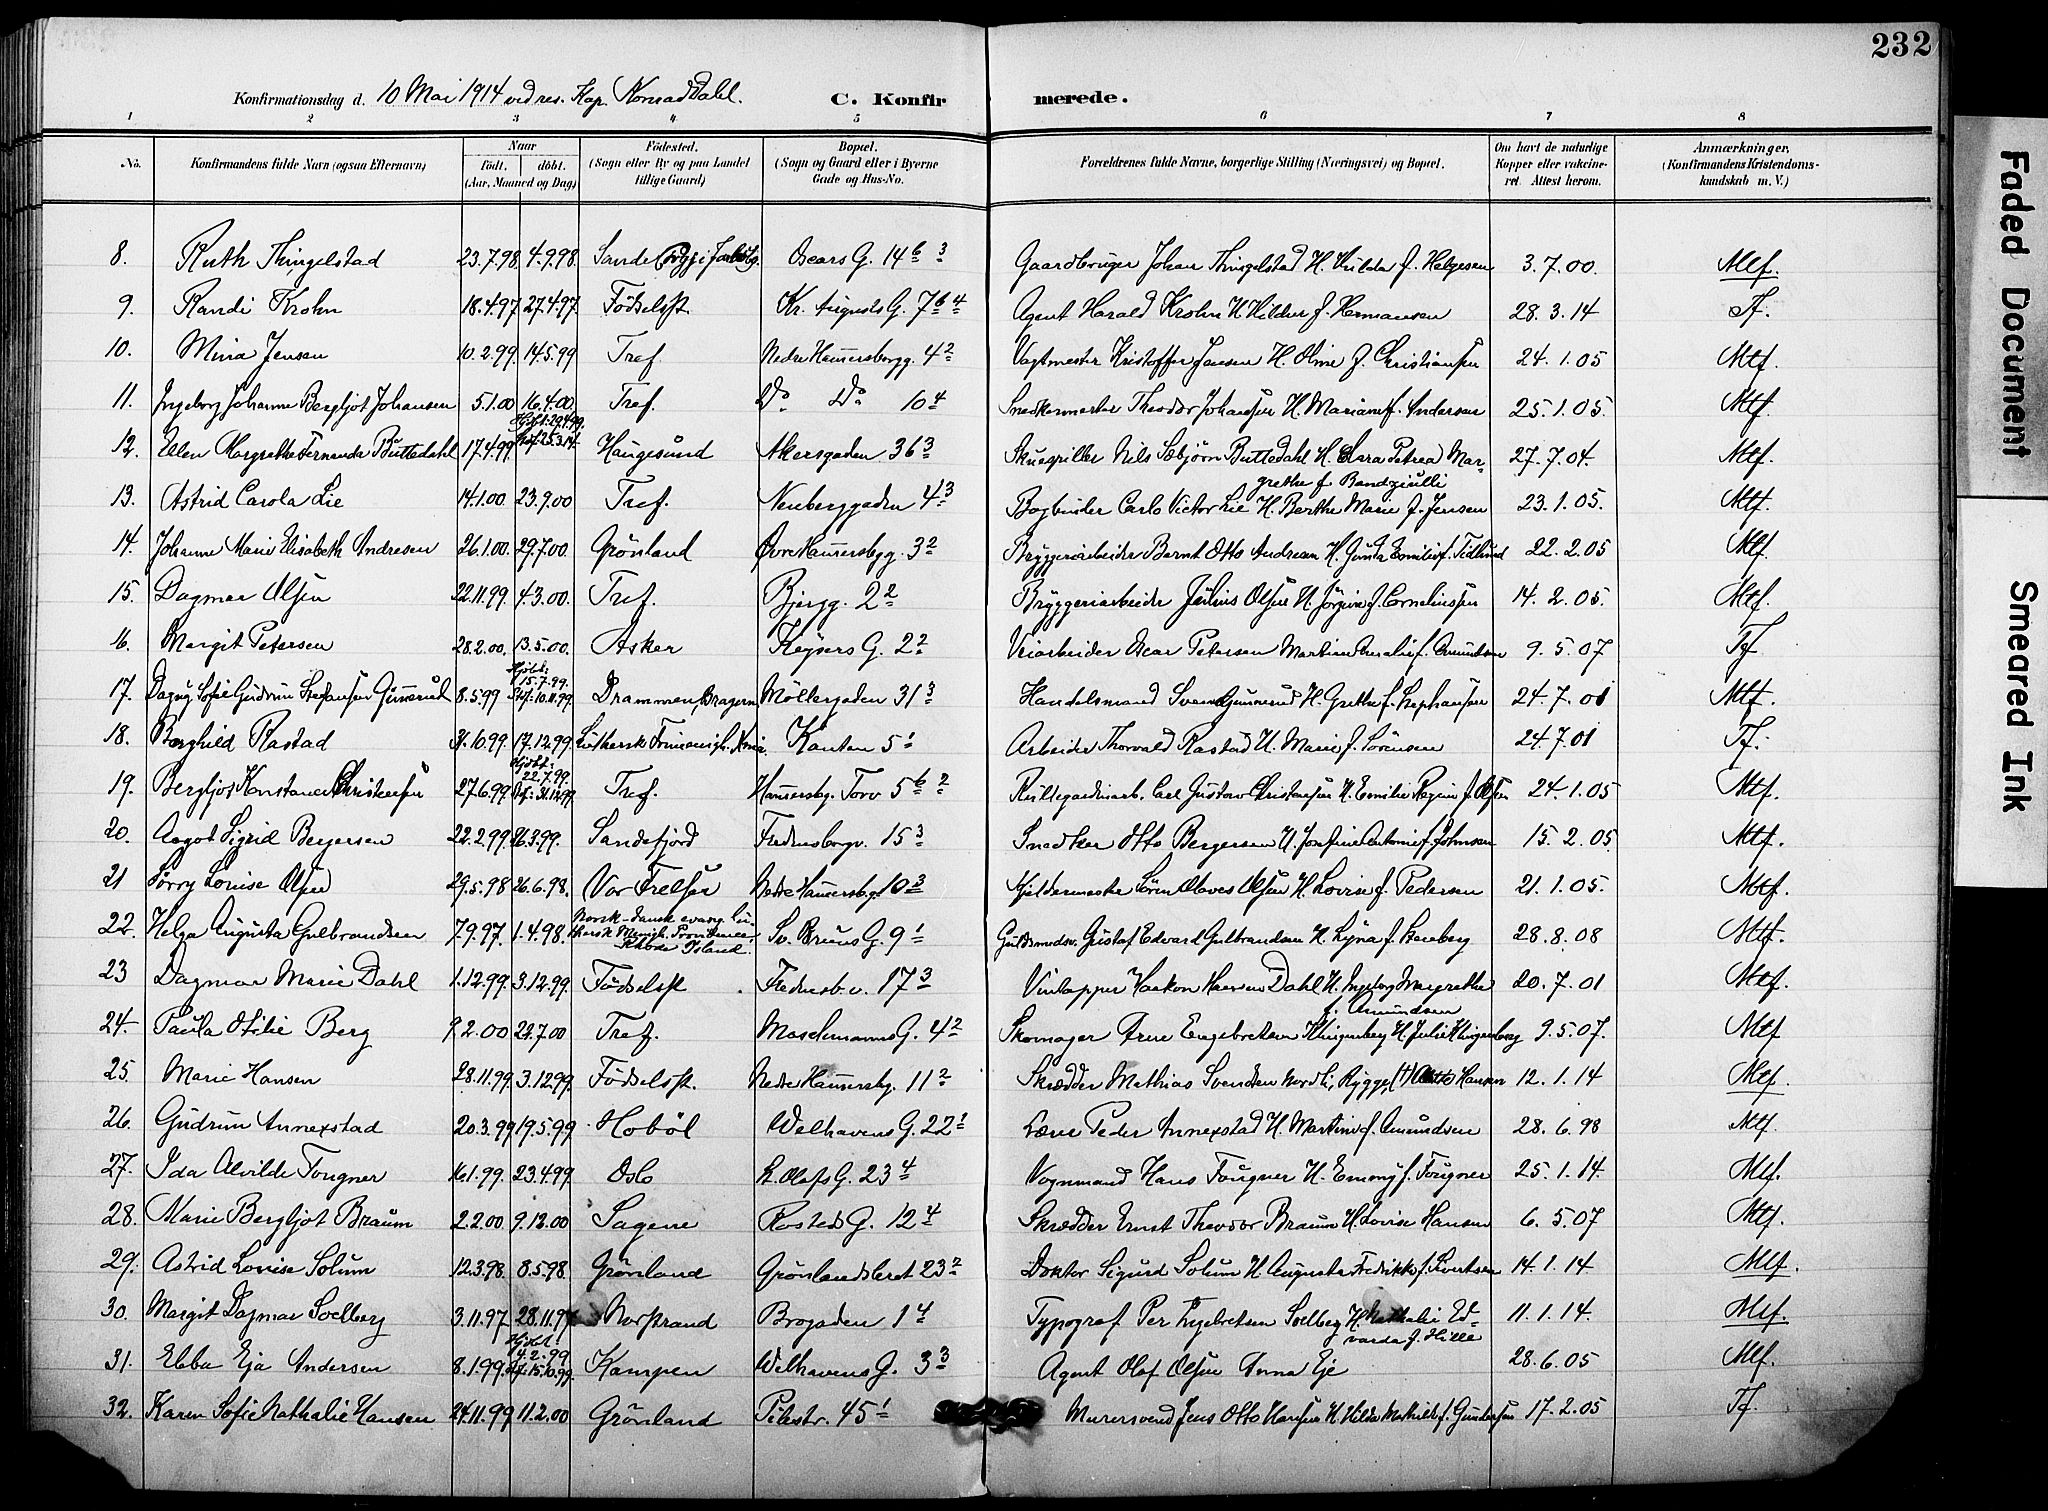 232
Konfirmationsdag d. 10 Mai 1914 ved res. Kap. Konrad Dahl. C. Konfirmerede.
1 2 3 4 5 6 7 8
No. Konfirmandens fulde Navn (ogsaa Efternavn) Naar født. døbt. (Aar, Maaned og Dag) Fødested. (Sogn eller By og paa Landet tillige Gaard) Bopæl. (Sogn og Gaard eller i Byerne Gade og Hus-No. Forældrenes fulde Navne, borgerlige Stilling (Næringsvei) og Bopæl. Om havt de naturlige Kopper eller vakcineret. Attest herom. Anmærkninger, (Konfirmandens Kristendomskundskab m. V.)
8. Ruth Thingelstad 23.7.98. 4.9.98. Sande Oscars G. 14 b 3 Gaardbruger Johan Thingelstad H. Hilda f. Helgesen 3.7.00. Mtf.
9. Randi Krohn 18.4.97 27.4.97. Fødselsst. Kr. Augusts G. 7 b 4 Agent Harald Krohn H. Hilda f. Hermansen 28.3.14 Tf.
10. Mina Jensen 10.2.99 14.5.99 Tref. Nedre Hausmannsg. 4 2 Vagtmester Kristoffer Jensen H. Oline f. Christiansen 24.1.05 Mtf.
11. Ingeborg Johanne Bergljot Johansen 5.1.00 16.4.00. Tref. Do Do 10 4 Snedkermester Theodor Johansen H. Mariane f. Andersen 25.1.05. Mtf.
12. Ellen Margrethe Fernanda Buttedahl 17.4.99 Haugesund Akersgaden 36 3 Skuespiller Nils Sæbjørn Buttedahl H. Clara Petrea Mar-
grethe f. 27.7.04. Mtf.
13. Astrid Carola Lie 14.1.00. 23.9.00 Tref. Neuberggaden 4 3 Bogbinder Carlo Victor Lie H. Berthe Marie f. Jensen 23.1.05. Mtf.
14. Johanne Marie Elisabeth Andresen 26.1.00 29.7.00. Grønland Øvre 3 2 Bryggeriarbeider Bernt Otto Andresen H. f. Tidlund 22.2.05 Mtf.
15. Dagmar Olsen 22.11.99. 4.3.00. Tref. Bjergg. 2 2 Bryggeriarbeider Julius Olsen H. f. Corneliussen 14.2.05. Mtf.
16. Margit Petersen 28.2.00. 13.5.00. Asker Keysers G. 2 2 Veiarbeider Oscar Petersen Martine f. Amundsen 9.5.07 Tf
17. Dagny Sofie Gudrun Stefansen Gunnerud 8.5.99 Hjdbt. 15.7.99. 10.11.99. Drammen, Bragern. Møllergaden 31 3 Handelsmand Svend Gunnerud H. Grethe f. Stephansen 24.7.01 Mtf.
18. Borghild Rastad 31.10.99. 17.12.99. Luthersk Frimenigh. Kria. Kanten 5 1 Arbeider Thorvald Rastad H. Marie f. Sørensen 24.7.01 Tf.
19. Bergljot Konstance Christensen 27.6.99. Hjdbt. 22.7.99. 31.12.99 Tref. Torv 5 b 2 Carl Gustav Christensen H. Emilie f. Olsen 24.1.05 Mtf.
20. Aagot Sigrid Bergersen 22.2.99. 26.3.99. Sandefjord Fredensborgv. 15 3 Snedker Otto Bergersen H. Josefine Antonie f. Johnsen 15.2.05. Mtf.
21 Louise Olsen 29.5.98 26.6.98. Vor Frelser Nedre 10 3 Søren Olaves Olsen H. Lovise f. Pedersen 21.1.05. Mtf.
22. Helga Augusta Gulbrandsen 7.9.97. 1.4.98. Norsk-dansk evang. lu-
thersk Menigh. Providence,
Rhode Island. Sv. Bruns G. 9 1 Guldsmedsv. Gustaf Edvard Gulbrandsen H. f. Stenberg 28.8.08 Mtf.
23 Dagmar Marie Dahl 1.12.99. 3.12.99. Fødselsst. Fredensb.v. 17 3 Vintapper Haakon Dahl H. Ingeborg Margrethe
f. Amundsen 20.7.01 Mtf.
24. Paula Otilie Berg 9.2.00 22.7.00 Tref. Maschmanns G. 4 2 Skomager Arne Engebretsen Klingenberg H. Julie Klingenberg 9.5.07. Mtf
25. Marie Hansen 28.11.99. 3.12.99. Fødselsst. Nedre 11 2 Skrædder Mathias Svendsen Nordli, Rygge, Hansen 12.1.14 Mtf.
26. Gudrun Annexstad 20.3.99 19.5.99 Hobøl Welhavens G. 22 1 Peder Annexstad H. Martine f. Amundsen 28.6.98 Mtf.
27. Ida Alvilde Fougner 16.1.99. 23.4.99 Oslo St. Olafs G. 23 4 Vognmand Hans Fougner H. Emmy f. Fougner 25.1.14. Mtf.
28. Marie Bergljot Braum 2.2.00 9.12.00 Sagene Rosteds G. 12 4 Skrædder Ernst Theodor Braum H. Lovise Hansen 6.5.07 Mtf.
29. Astrid Louise Solum 12.3.98. 8.5.98 Grønland Grønlandsleret 23 2 Doktor Sigurd Solum H. Augusta Fredrikke f. Sivertsen 14.1.14 Mtf.
30. Margit Dagmar Soelberg 3.11.97 28.11.97 Norstrand Brogaden 1 4 Typograf Per Soelberg H. Nathalie Ed-
varda f. Hille 11.1.14. Mtf.
31. Ebba Eja Andersen 8.1.99. Hjdbt. 4.2.99 15.10.99. Kampen Welhavens G. 3 3 Agent Olaf Olsen Anna Eje 28.6.05 Mtf.
32. Karen Sofie Nathalie Hansen 24.11.99 11.2.00 Grønland Pilestr. 45 1 Murersvend Jens Otto Hansen H. Hilda Mathilde f. Gundersen 17.2.05 Tf.
Faded Document
Smeared Ink